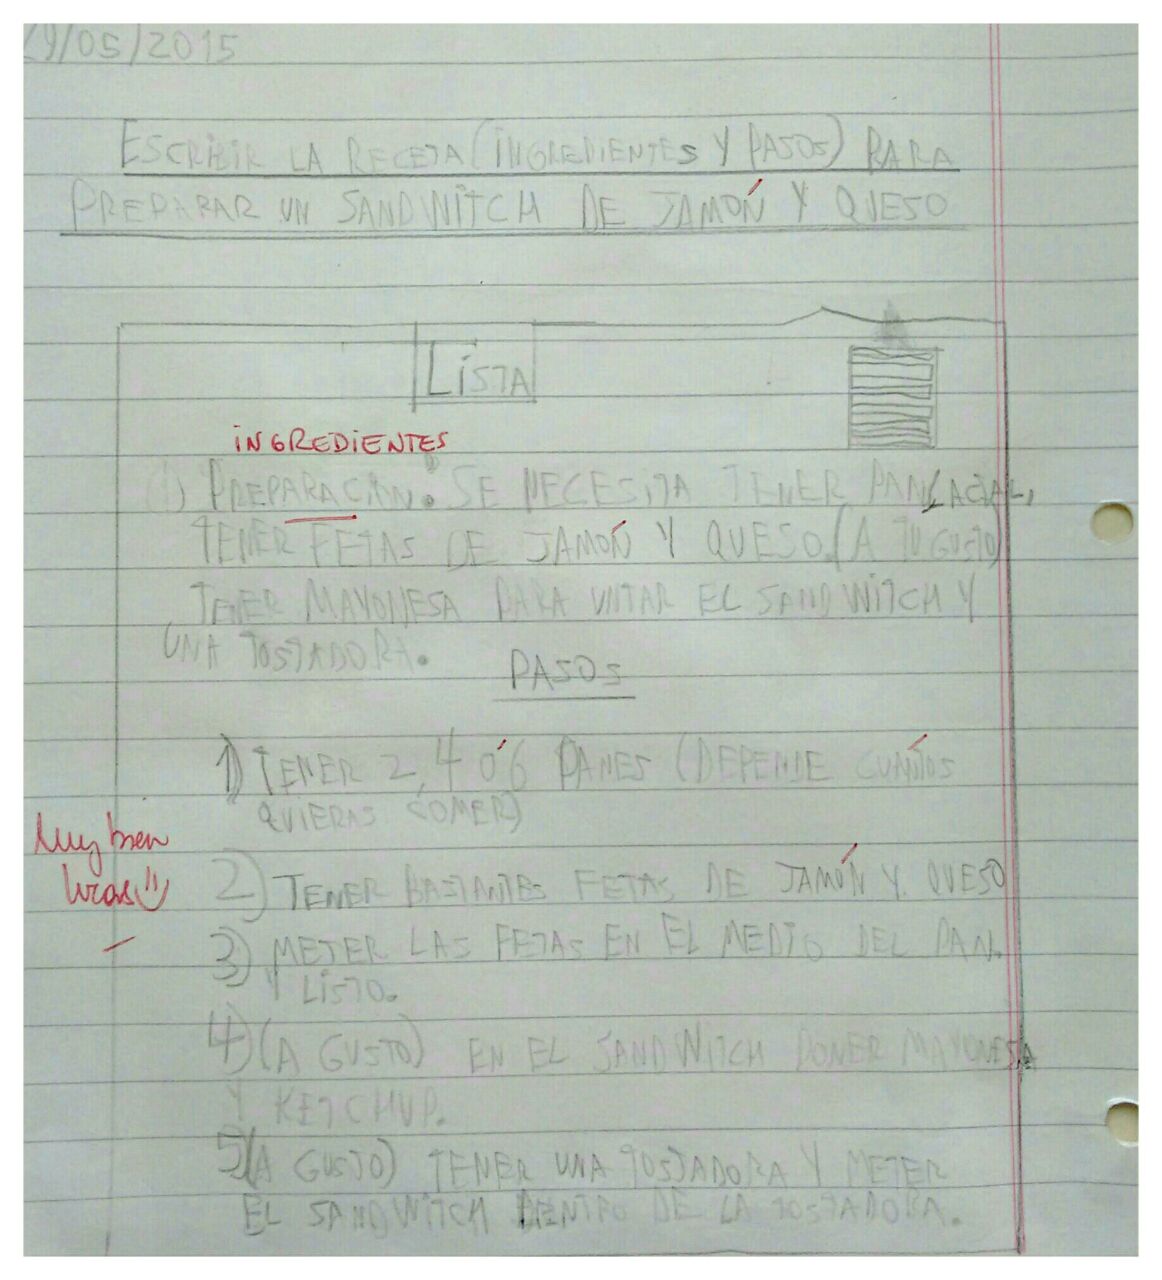 29/05/2015
ESCRIBIR LA RECETA (INGREDIENTES Y PASOS) PARA
PREPARAR UN SANDWITCH DE JAMÓN Y QUESO
LISTA
INGREDIENTES
1) PREPARACIÓN: SE NECESITA TENER PAN LACTAL,
TENER FETAS DE JAMÓN Y QUESO. (A TU GUSTO)
TENER MAYONESA PARA UNTAR EL SANDWITCH Y
UNA TOSTADORA.
PASOS
1) TENER 2, 4 Ó 6 PANES (DEPENDE CUÁNTOS
QUIERAS COMER)
Muy bien
Lucas!!
2) TENER BASTANTES FETAS DE JAMÓN Y QUESO
3) METER LAS FETAS EN EL MEDIO DEL PAN.
Y LISTO.
4) (A GUSTO) EN EL SANDWITCH PONER MAYONESA
Y KETCHUP.
5) (A GUSTO) TENER UNA TOSTADORA Y METER
EL SANDWITCH DENTRO DE LA TOSTADORA.